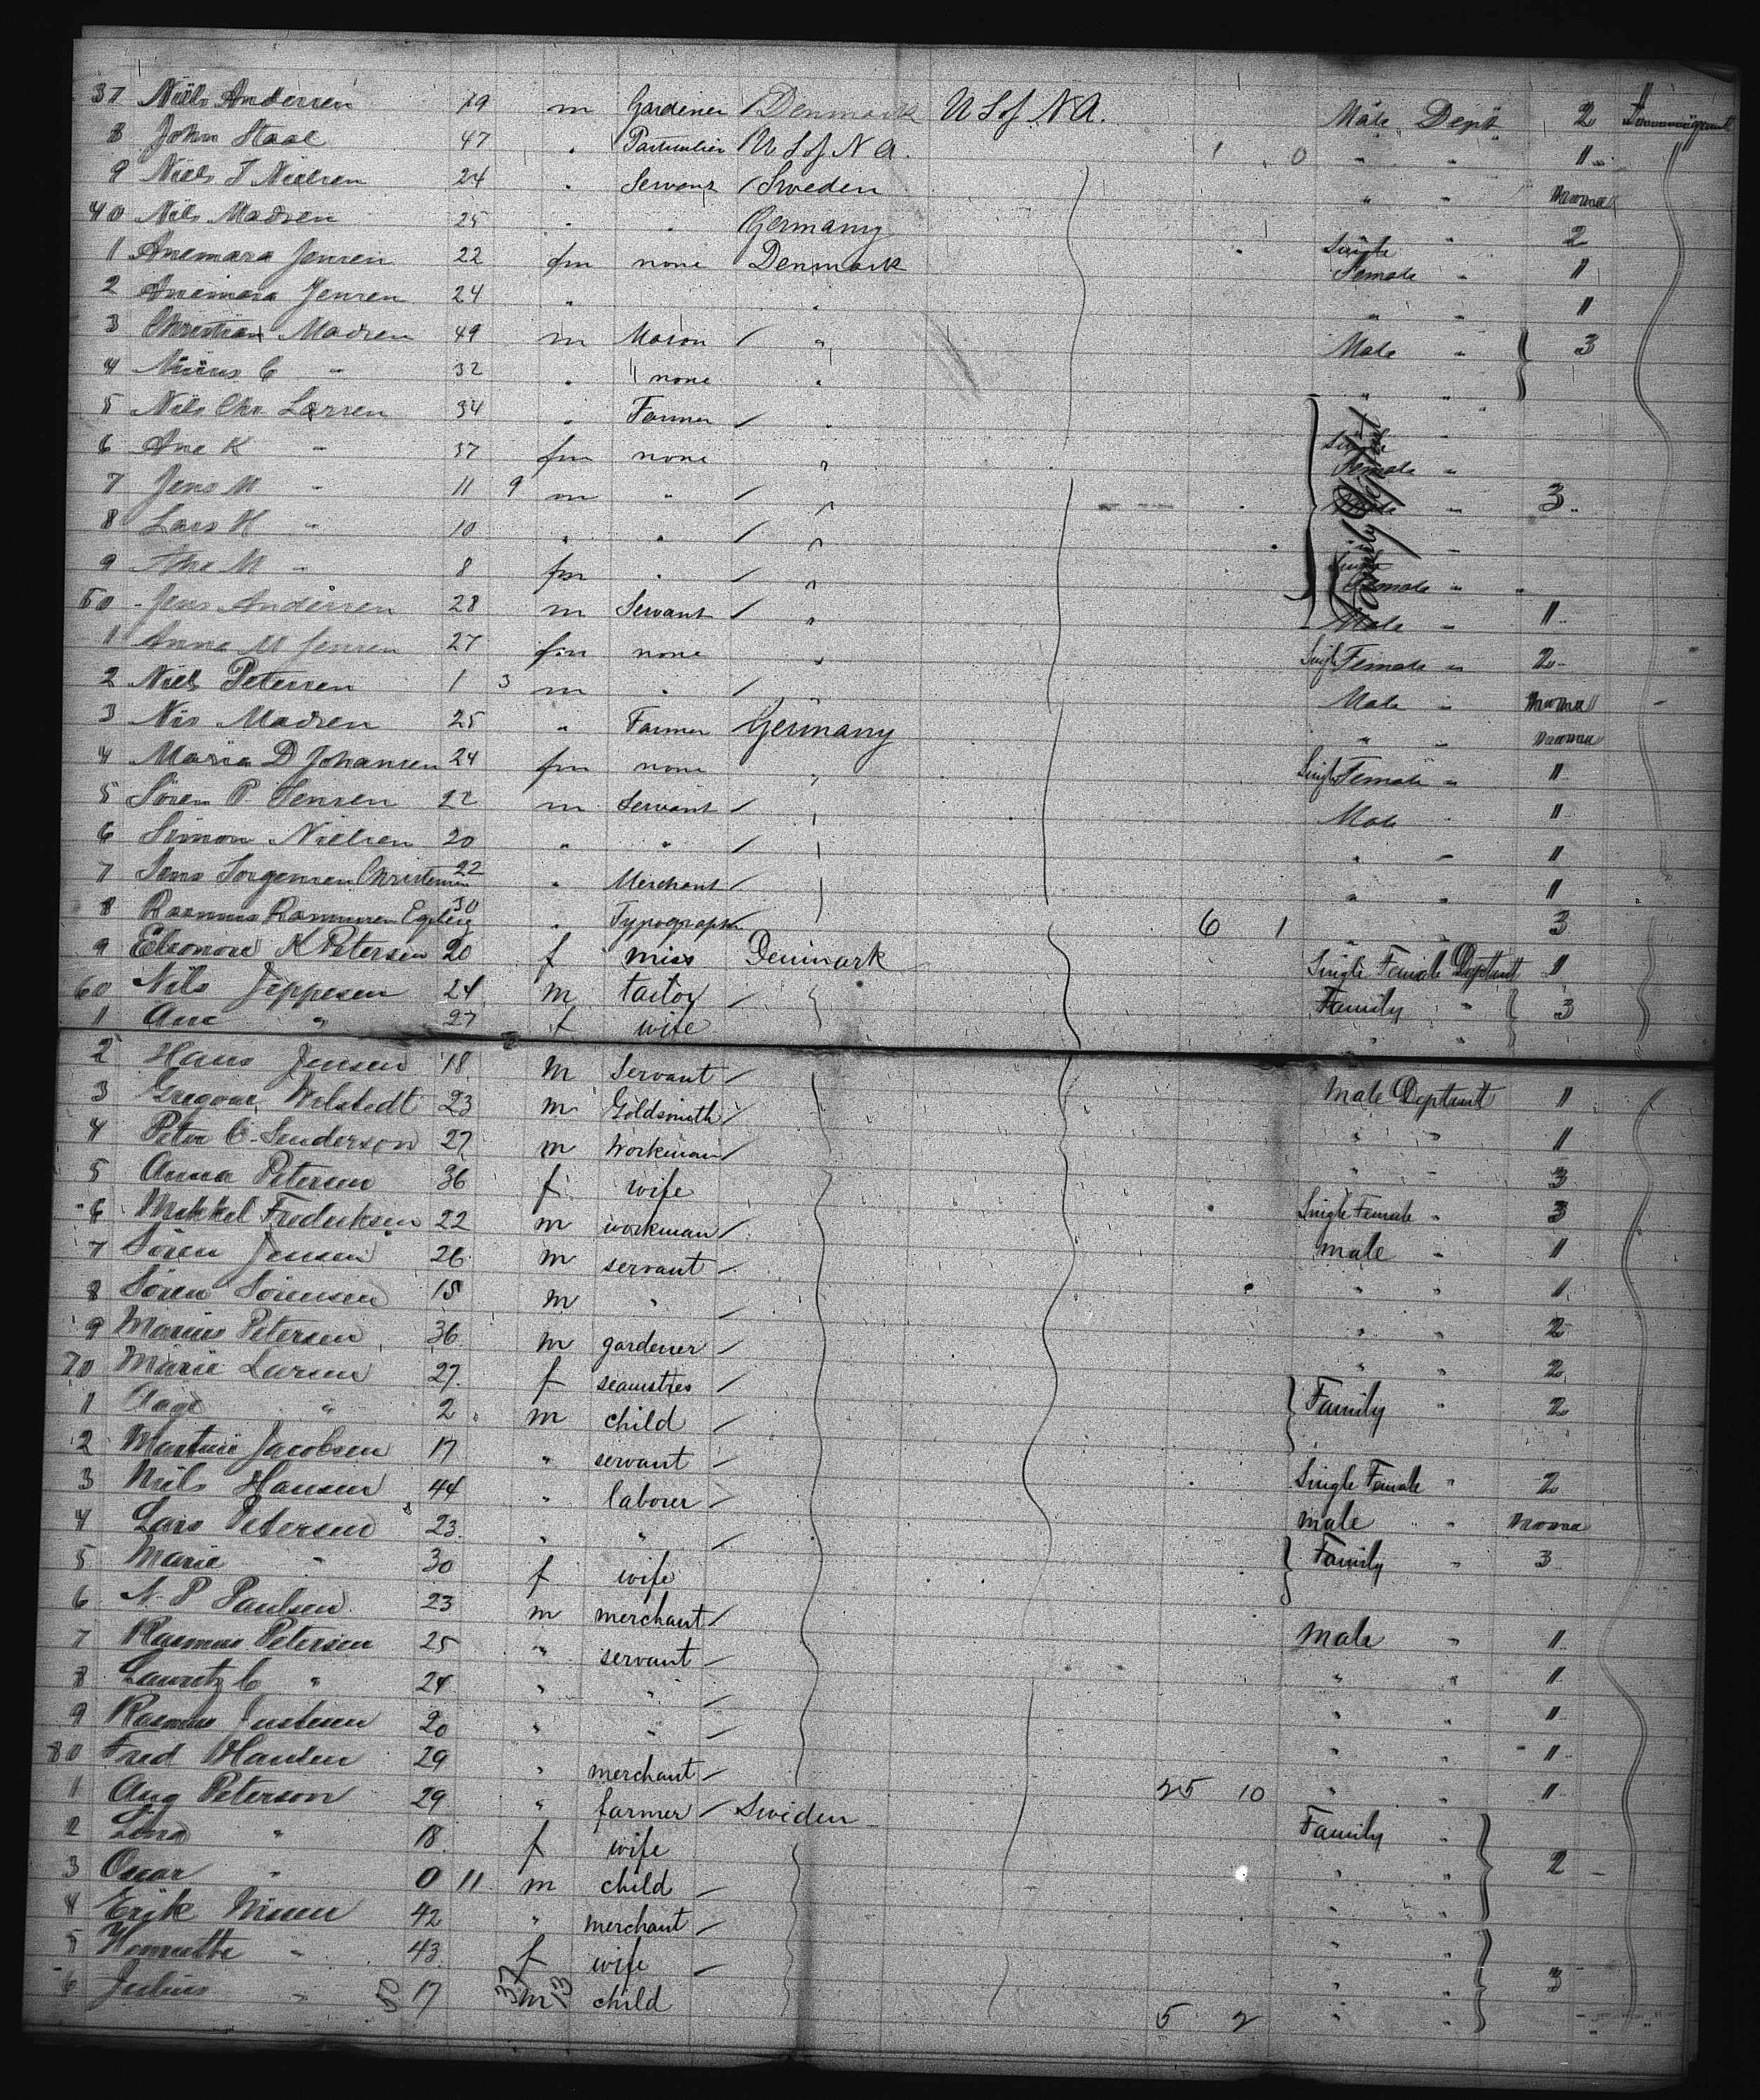 37 Niels Andersen 79 m Gardener / Denmark U S of N A. Male Dept 2
8 John Staal 47 " Particulier / U S of N A. 1 0 " " 11
9 Niels J Nielsen 24 " Servant / Sweden " "
40 Nils Madsen 25 " " Germany " 2
1 Anemara Jensen 22 fm none Denmark Single Female " 11
2 Anemara Jensen 24 " " " " 11
3 Christian Madsen 49 m Mason / " Male " } 3
4 C " 32 " " none " " "
5 Nils Chr Larsen 34 " Farmer / " "
6 Ane K " 37 fm none " Single Female "
7 Jens M " 11 9 m " / " Male " 3
8 Lars H " 10 " " / " "
9 Ane M " 8 fm " / " Single Female "
50 Jens Andersen 28 m Servant / " Male " 11
1 Anna M Jensen 27 fm none " Single Female " 2
2 Niels Petersen 1 3 m " / " Male "
3 Nis Madsen 25 " Farmer Germany " "
4 Maria D Johansen 24 fm none " Single Female " 11
5 Sören P. Jensen 22 m Servant / " Male 11
6 Simon Nielsen 20 " " / " " 11
7 Jens Jorgensen Christensen 22 " Merchant / " " 11
8 Rasmus Rasmussen 30 " Typograph / 6 1 " 3
9 Eleonora K Petersen 20 f miss Denmark Single Female Deptmt 11
60 Nils Jeppesen 24 m tailor / Family " } 3
1 Ane " 27 f wife " "
2 Hans Jensen 18 m Servant / Male Deptmt 11
3 23 m Goldsmith / " " 11
4 Peter C. Senderson 27 m Workman / " " 3
5 Anna Petersen 36 f wife Single Female " 3
6 Mikkel Frederiksen 22 m workman / male " 11
7 Sören Jensen 26 m servant / " " 11
8 Sören Sörensen 15 m " / " " 2
9 Marius Petersen 36 m gardener / " " 2
70 Marie Larsen 27 f seamstres / } Family " 2
1 Aage " 2 m child /
2 Jacobsen 17 " servant / Single Female " 2
3 Niels Hansen 44 " labourer / male "
4 Lars Petersen 23 " " / } Family " 3
5 Marie " 30 f wife
6 N. P Paulsen 23 m merchant / male " 11
7 Rasmus Petersen 25 " servant / " " 11
8 Lauritz C " 24 " " / " " 11
9 Rasmus Justesen 20 " " / " " 11
80 Fred Hansen 29 " merchant / 25 10 " " 11
1 Aug Peterson 29 " farmer / Sweden Family "
2 Lina " 18 f wife " " } 2
3 Oscar " 0 11 m child / " "
4 Erik Nissen 42 " merchant / " "
5 " 43 f wife / " " } 3
6 Julius " 50 17 37 m 13 child 5 2 " "